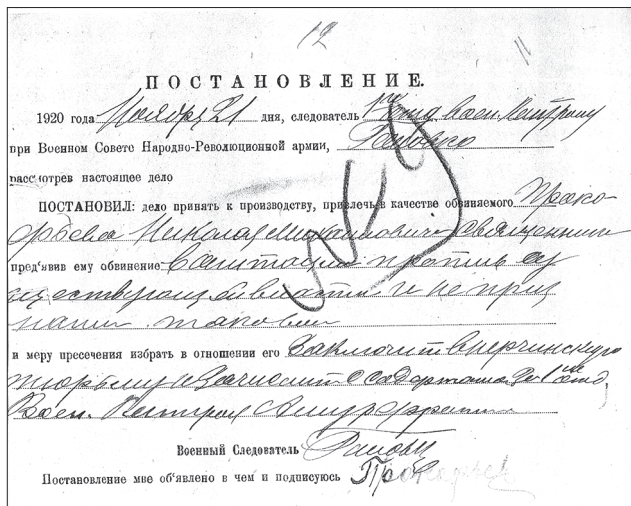 12
11
ПОСТАНОВЛЕНИЕ.
1920 года Ноября 21 дня, следователь воен. контроля
при Военном Совете Народно-Революционной армии,
рассмотрев настоящее дело
ПОСТАНОВИЛ: дело принять к производству, привлечь в качестве обвиняемого Проко-
фьева Николая Михайловича священник
пред'явив ему обвинение в агитации против су
ществующей власти и не приз
нании таковой
и меру пресечения избрать в отношении его Заключить в нерчинскую
тюрьму и зачислить содержанием за 1 отд.
Воен. Контроля Амур фронта
Военный Следователь
Постановление мне об'явлено в чем и подписуюсь Прокофьев